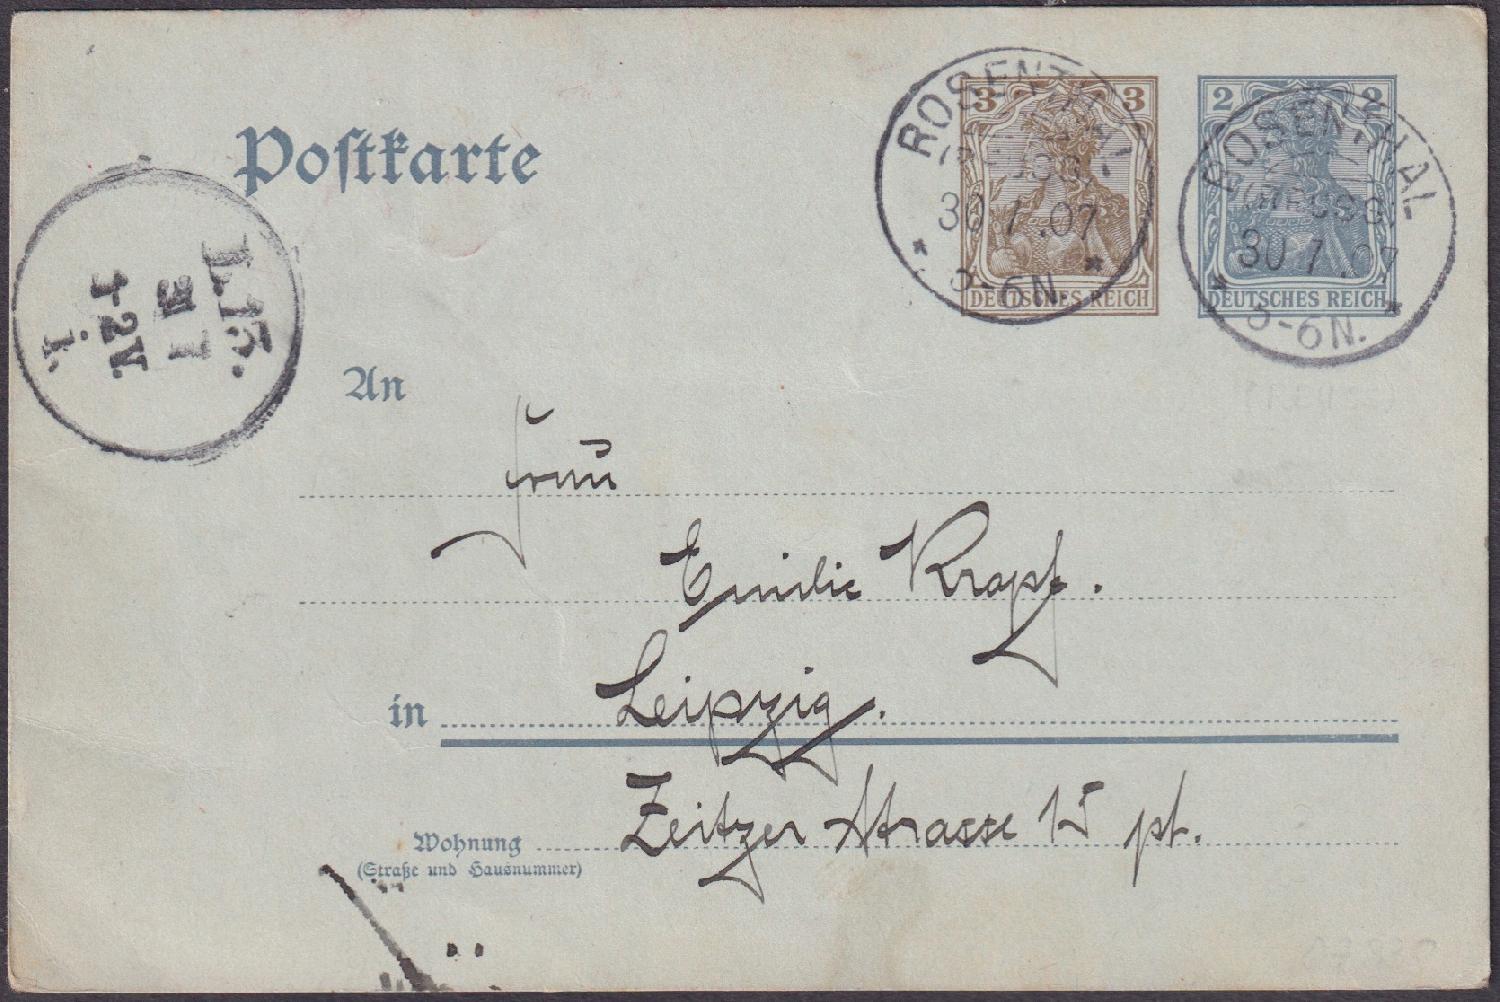 Postkarte
3 3
DEUTSCHES REICH
2 2
DEUTSCHES REICH
ROSENTHAL
(REUSS)
30 7.07
* 5-6N. *
ROSENTHAL
(REUSS)
30 7.07
* 5-6N. *
L.13.
31 7
1-2V.
An
Frau
Emilie Kropf.
in Leipzig.
Wohnung Zeitzer Strasse 15 pt.
(Straße und Hausnummer)